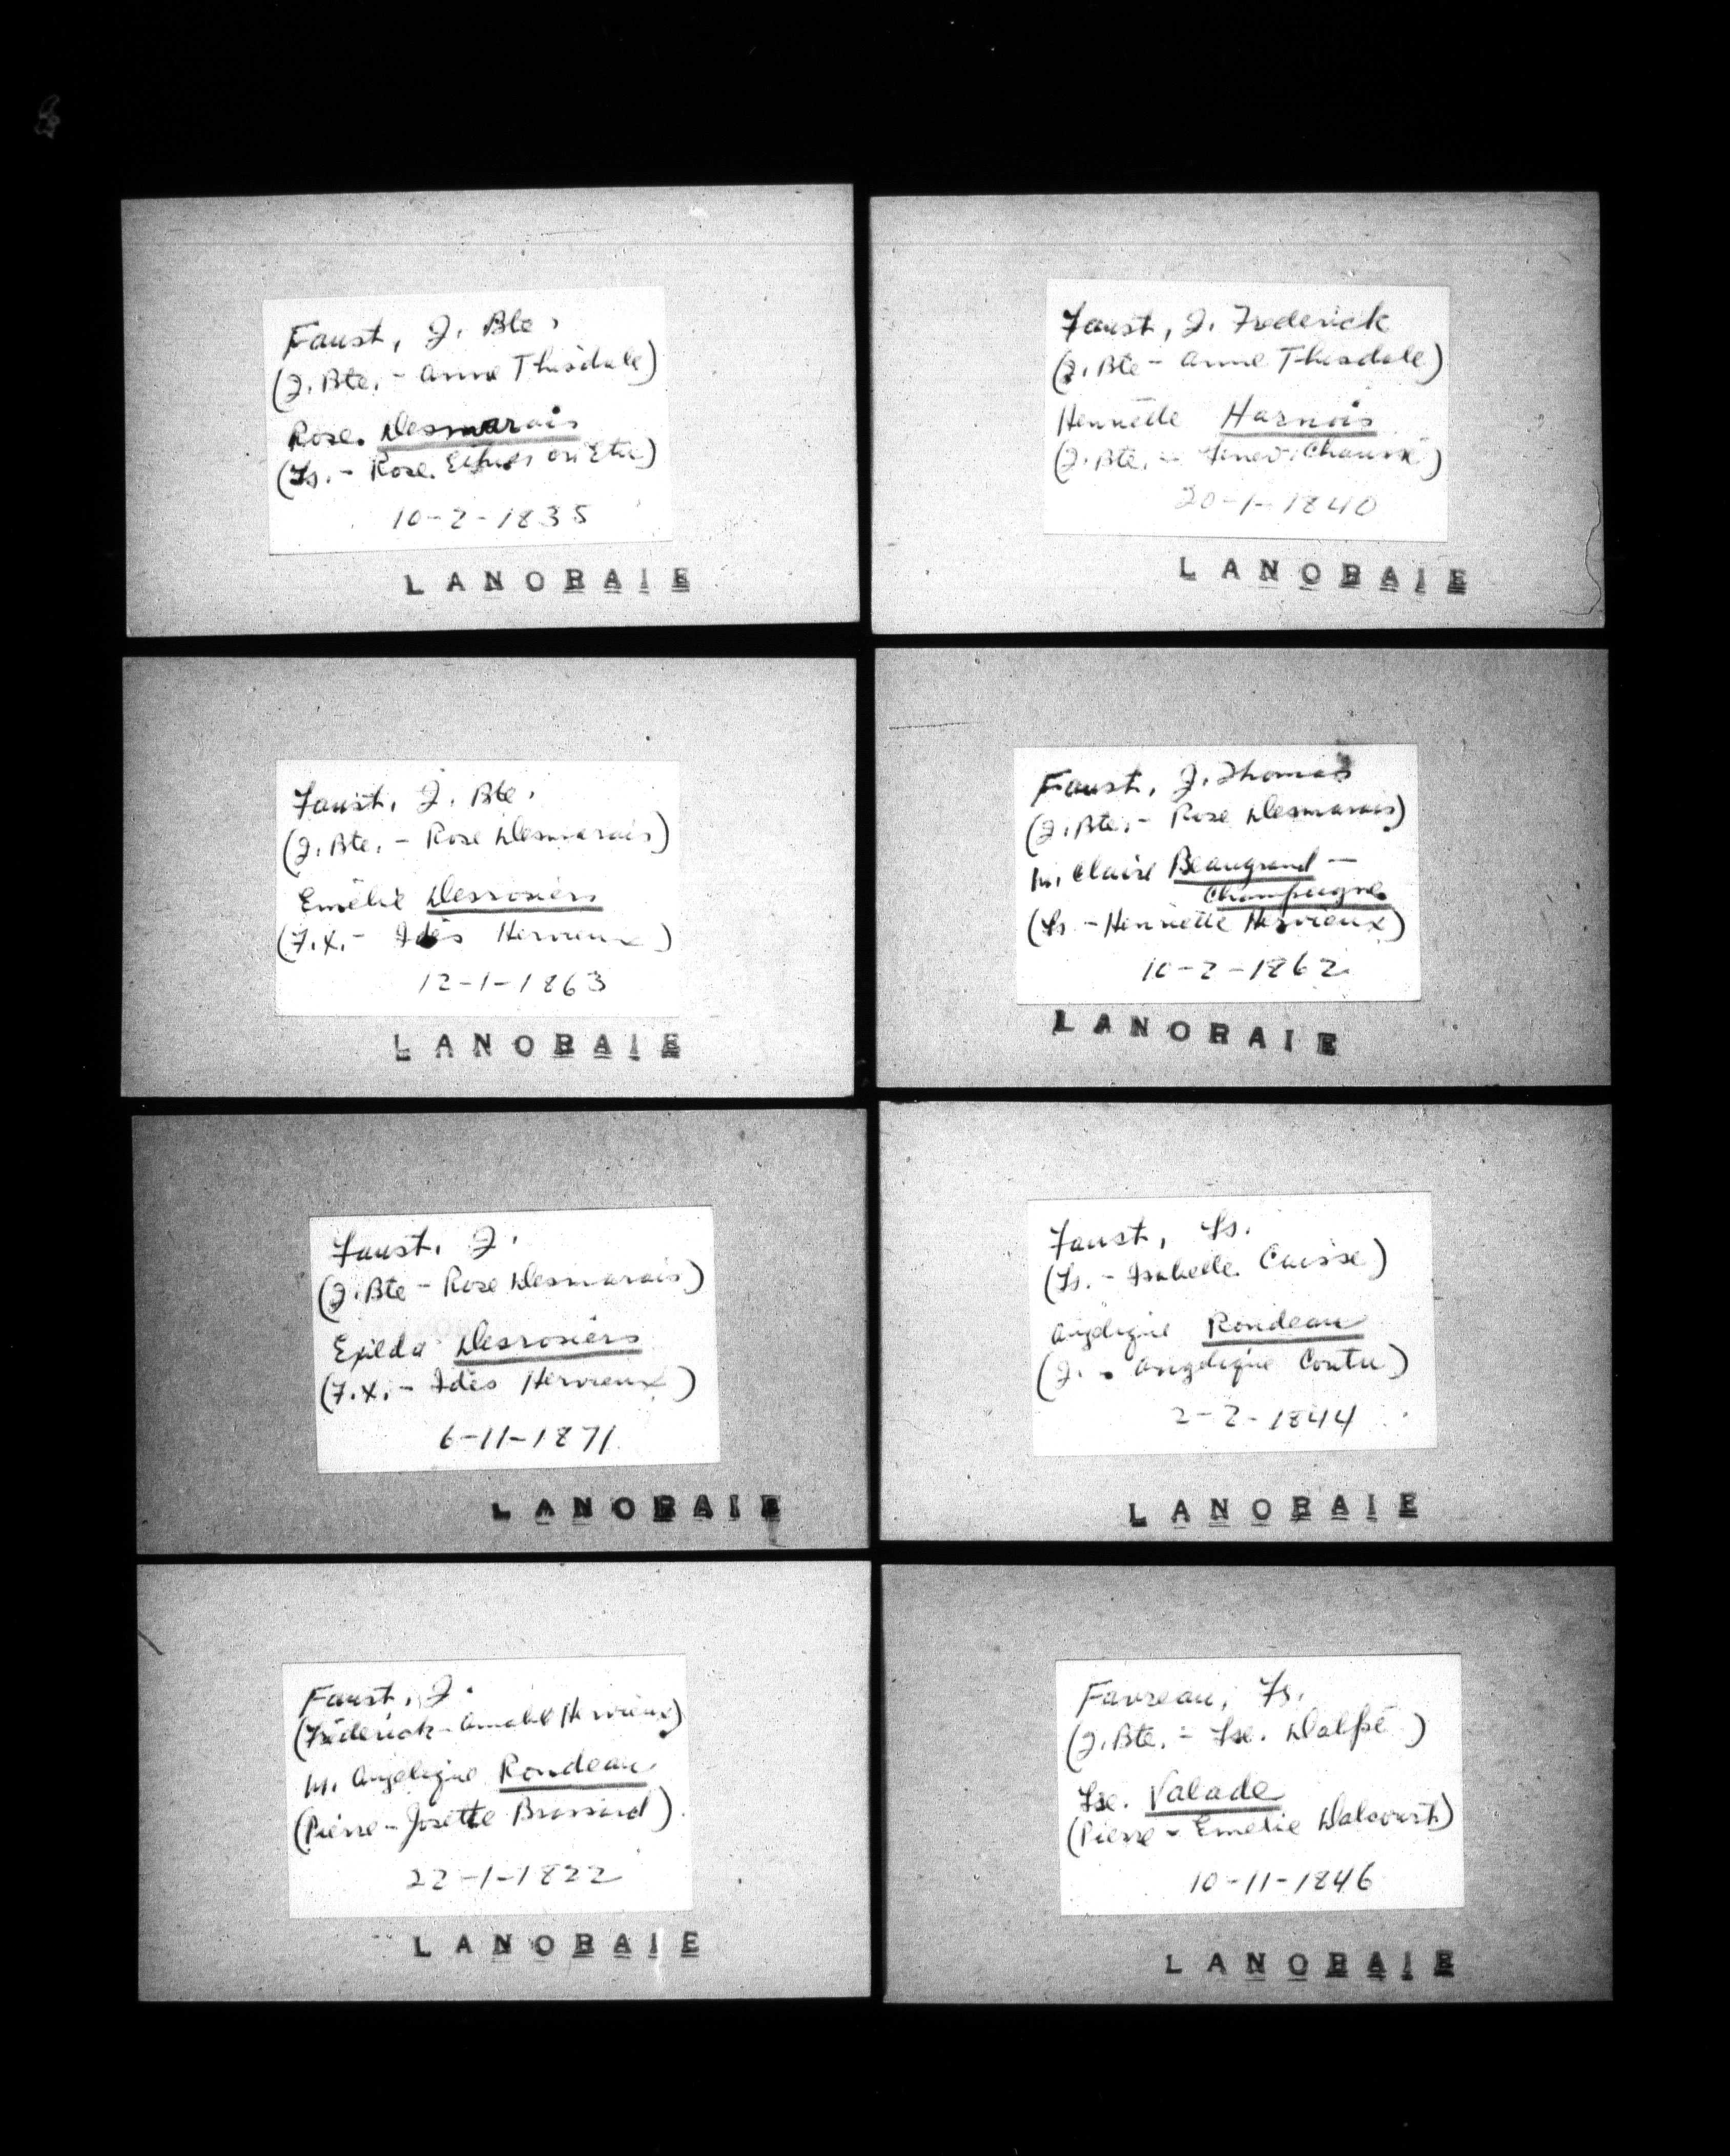 Faust, J. Bte.
(J. Bte. - Anne Thisdale)
Rose Desmarais
(Fs. - Rose ou Etu)
10-2-1835
LANORAIE
Faust, J. Frederick
(J. Bte - Anne Thisdale)
Henriette Harnois
(J. Bte. - Genev. Chaussé)
20-1-1840
LANORAIE
Faust, J. Bte.
(J. Bte. - Rose Desmarais)
Emélie Desrosiers
(F.X. - Ades Hervieux)
12-1-1863
LANORAIE
Faust, J. Thomas
(J. Bte. - Rose Desmarais)
M. Claire Beaugrand -
Champagne
(Ls - Henriette Hervieux)
10-2-1862
LANORAIE
Faust, J.
(J. Bte - Rose Desmarais)
Exilda Desrosiers
(F.X. - Adès Hervieux)
6-11-1871
LANORAIE
Faust, Ls.
(Ls. - Isabelle Caisse)
Angelique Rondeau
(J. - Angelique Coutu)
2-2-1844
LANORAIE
Faust, J.
(Fréderick - Amable Hervieux)
M. Angelique Rondeau
(Pierre - Josette Brossard)
22-1-1822
LANORAIE
Favreau, Fs.
(J. Bte. - Fse. Dalpé)
Fse. Valade
(Pierre - Emelie Dalcourt)
10-11-1846
LANORAIE